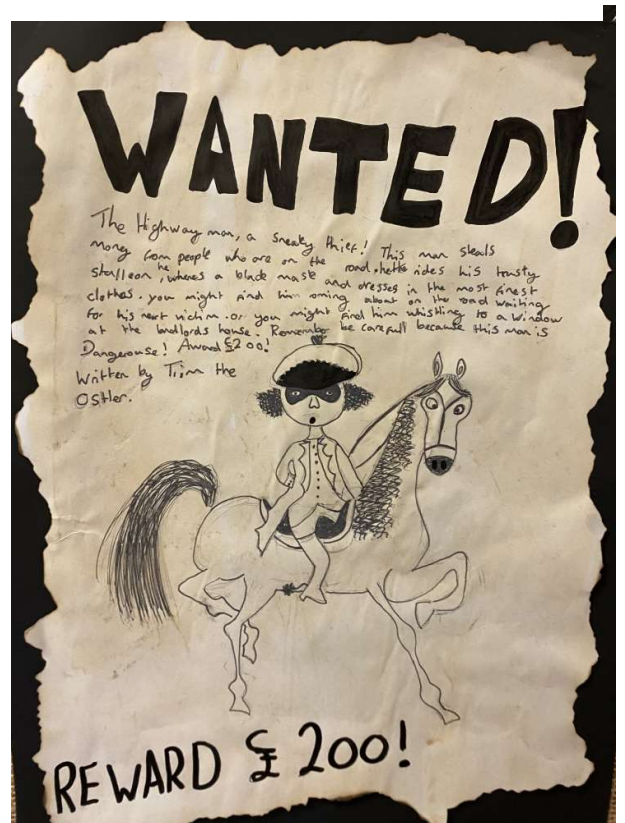 WANTED!
The Highway man, a sneaky thief! This man steals
money from people who are on the road. he rides his trusty
stalleon, he wheres a black mask and dresses in the most finest
clothes. you might find him oming about on the road waiting
for his next victim. or you might find him whistling to a window
at the landlords house. Remember be carefull because this man is
Dangerouse! Award £200!
Written by Tim the
Ostler.
REWARD £200!